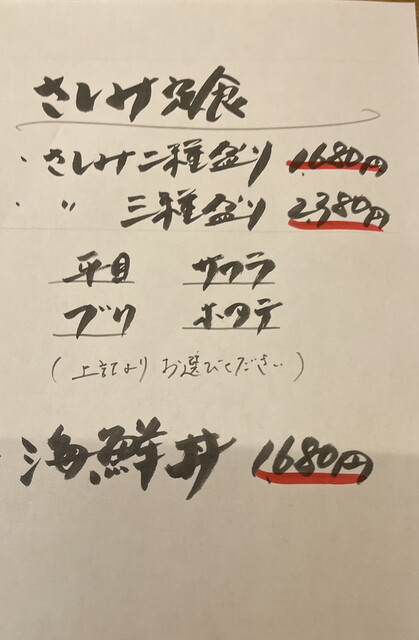 さしみ定食
・さしみ二種盛り 1,680円
・〃 三種盛り 2,380円
平目 サワラ
ブリ ホタテ
(上記よりお選びください)
・海鮮丼 1,680円